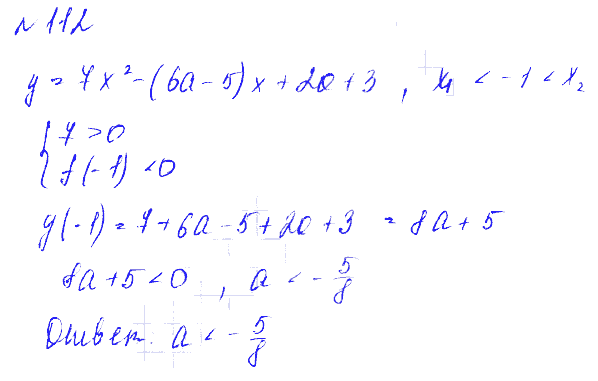 № 112
y = 7x² - (6a - 5)x + 2a + 3 , x₁ < -1 < x₂
{ 7 > 0
{ f(-1) < 0
y(-1) = 7 + 6a - 5 + 2a + 3 = 8a + 5
8a + 5 < 0 , a < - 5/8
Ответ: a < - 5/8